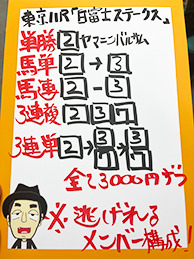 東京11R「白富士ステークス」
単勝 2 ヤマニンバルサム
馬単 2→3
馬連 2-3
3連複 2 3 7
3連単 2→3 7→3 7
全て3000円ずつ
※逃げれる
メンバー構成!